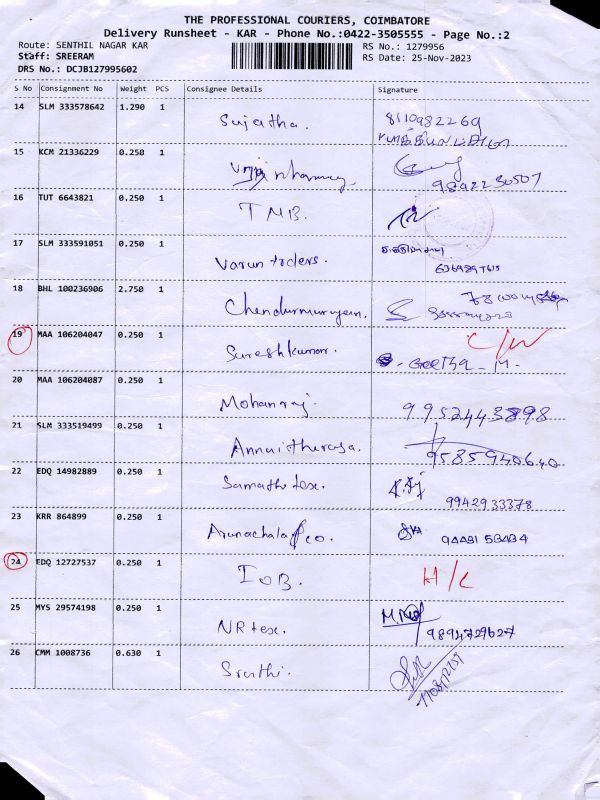 THE PROFESSIONAL COURIERS, COIMBATORE
Delivery Runsheet - KAR - Phone No.:0422-3505555 - Page No.:2
Route: SENTHIL NAGAR KAR RS No.: 1279956
Staff: SREERAM RS Date: 25-Nov-2023
DRS No.: DCJB127995602
S No Consignment No Weight PCS Consignee Details Signature
14 SLM 333578642 1.290 1 Sujatha. 8110982269
15 KCM 21336229 0.250 1 pharmacy 9892230507
16 TUT 6643821 0.250 1 TMB.
17 SLM 333591051 0.250 1 Varun trders.
18 BHL 100236906 2.750 1 Chendurmurugan.
19 MAA 106204047 0.250 1 Sureshkumar. C/W
Geetha - M.
20 MAA 106204087 0.250 1 Mohanraj. 9952443898
21 SLM 333519499 0.250 1 Annaitherasa. 9585940640
22 EDQ 14982889 0.250 1 Samathi tex. 9942933378
23 KRR 864899 0.250 1 Arunachala & co. 94431 53434
24 EDQ 12727537 0.250 1 IOB. H/C
25 MYS 29574198 0.250 1 NR tex. 9894729627
26 CMM 1008736 0.630 1 Sruthi.